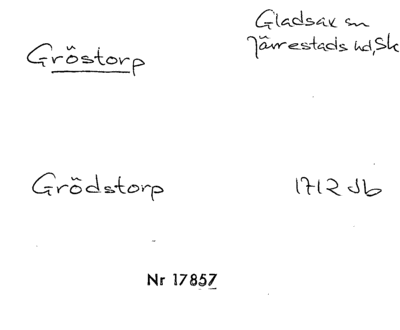 Gladsax sn
Gröstorp
Järrestads hd, Sk
Grödstorp
1712 Jb
Nr 17857